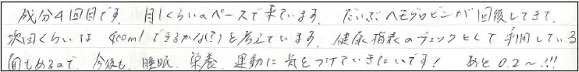 成分4回目です。月1くらいのペースで来ています。だいぶヘモグロビンが回復してきて、
次回くらいは400mlできるかな(?)と考えています。健康指表のチェックとして利用している
面もあるので、今後も、睡眠、栄養、運動に気をつけていきたいです! あと0.2〜!!!